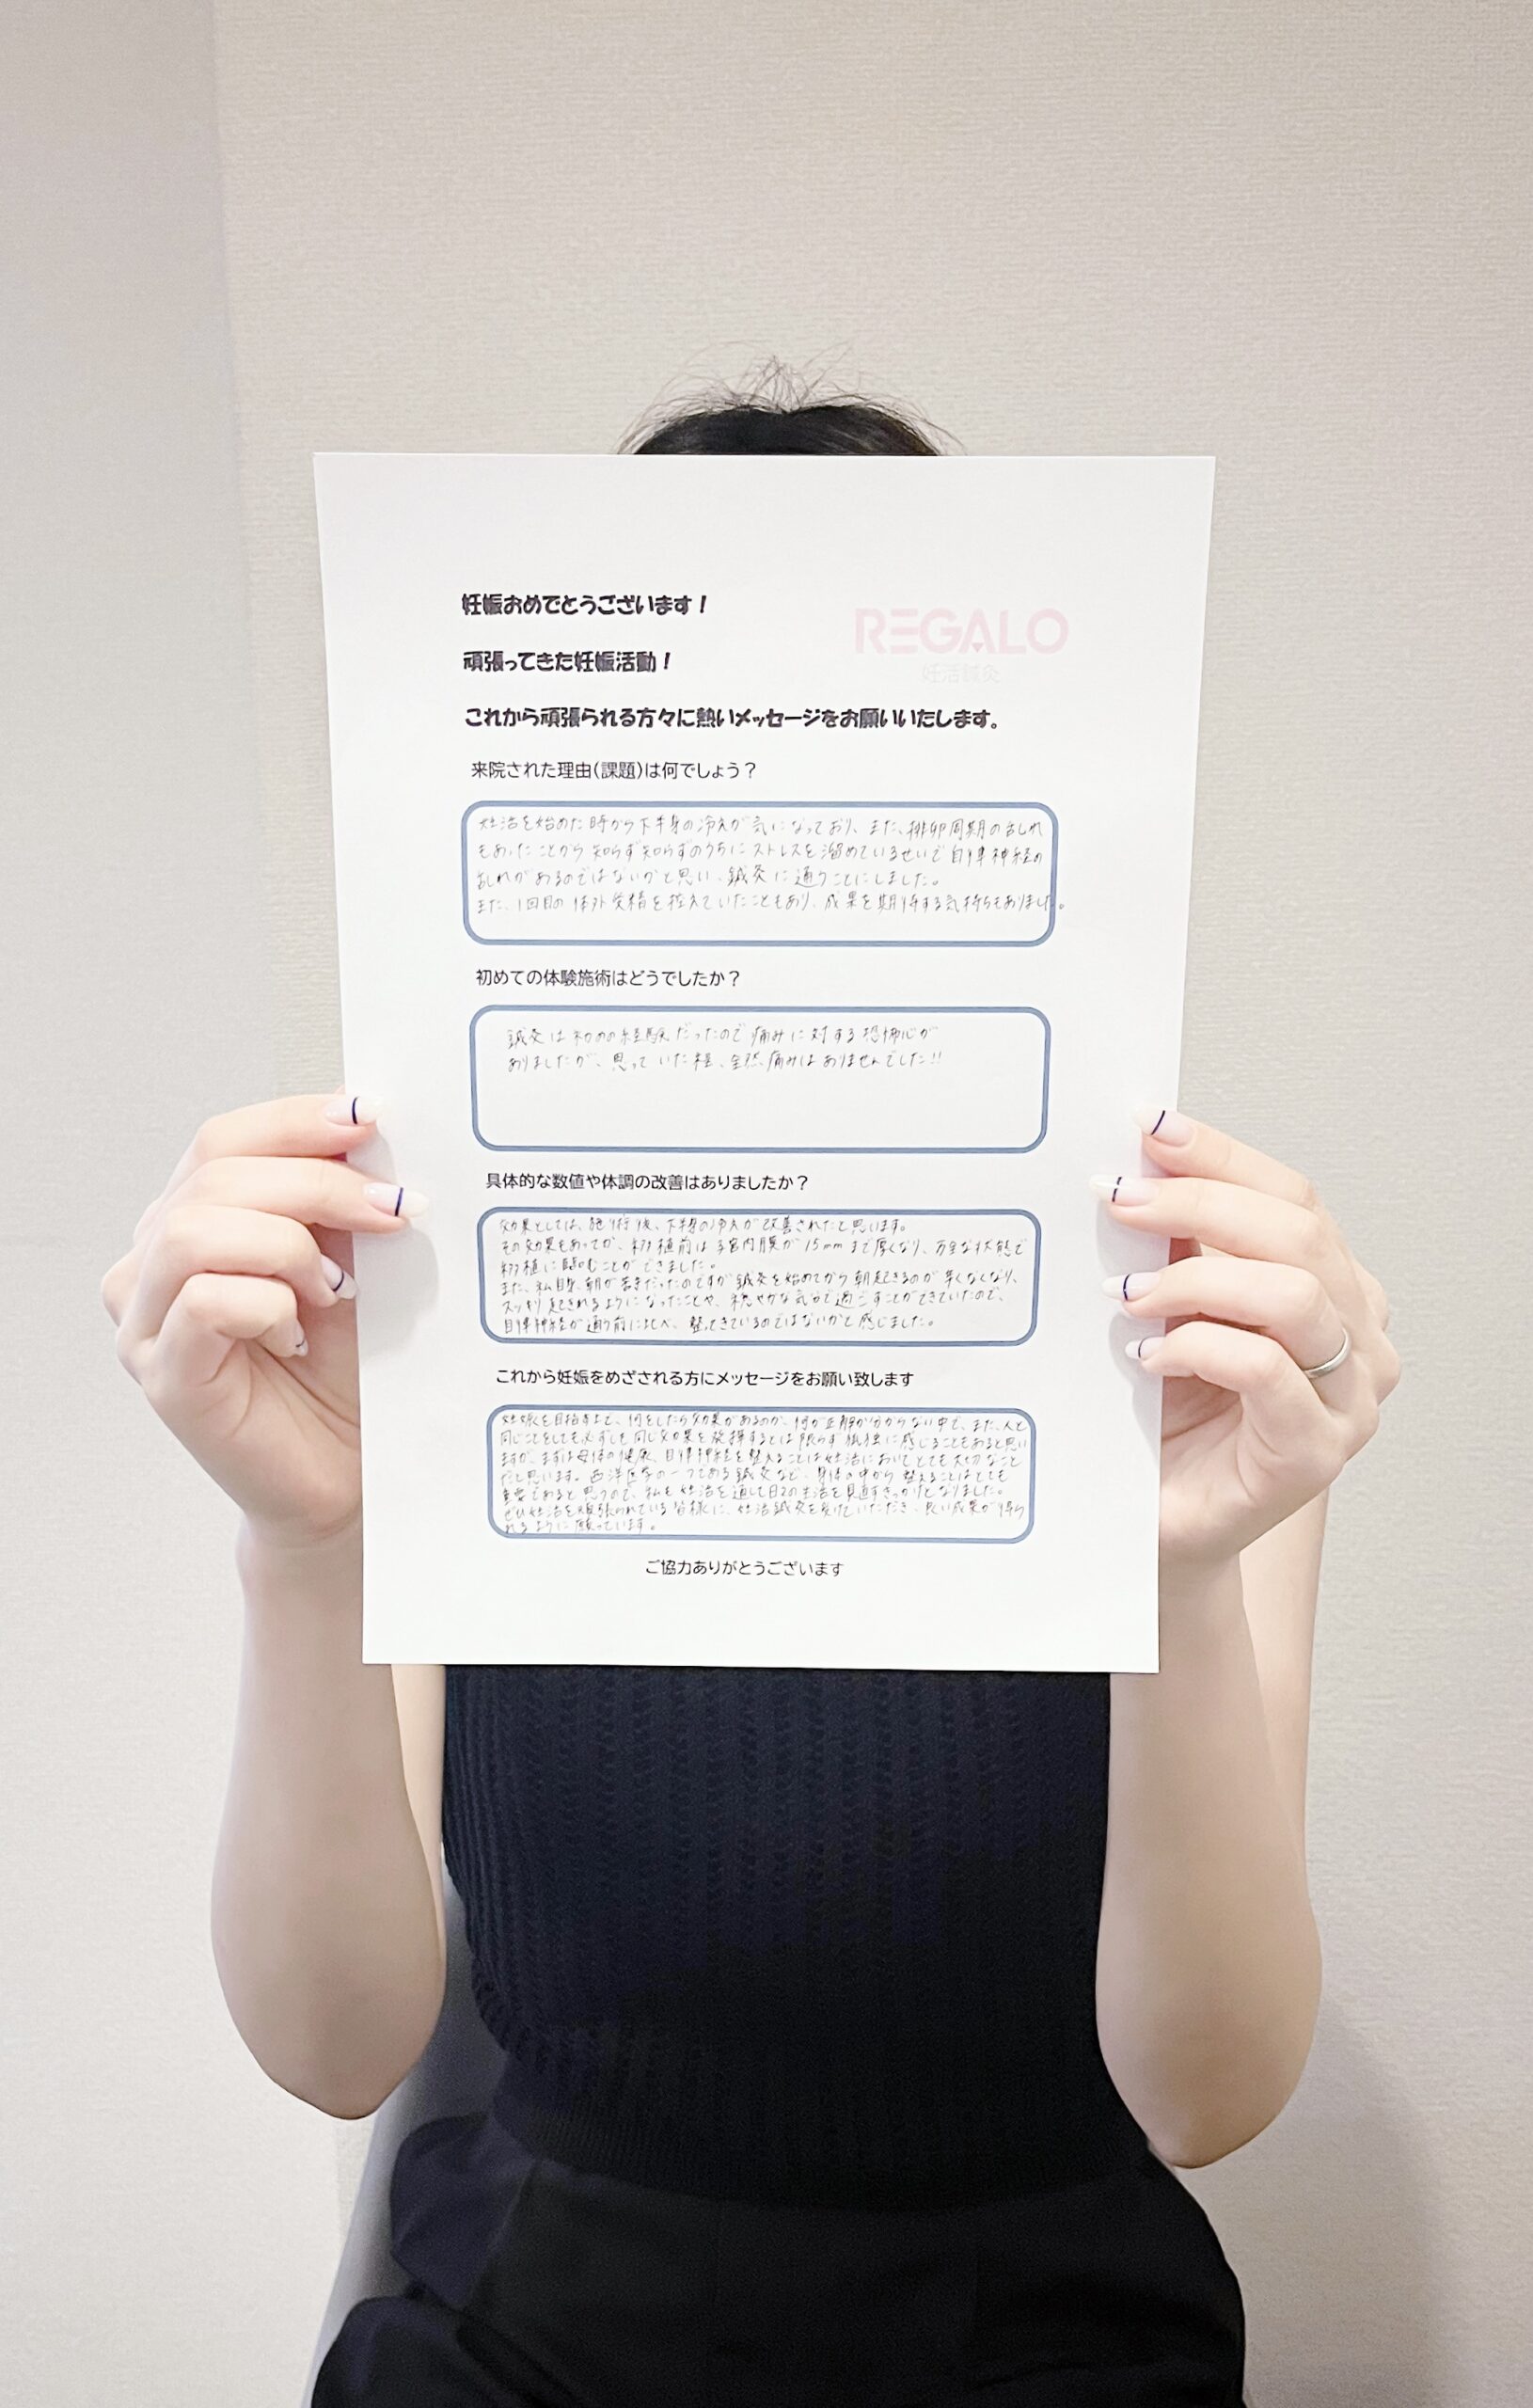 妊娠おめでとうございます！
REGALO
頑張ってきた妊娠活動！
妊活鍼灸
これから頑張られる方々に熱いメッセージをお願いいたします。
来院された理由(課題)は何でしょう？
妊活を始めた時から下半身の冷えが気になっており、また、排卵周期の乱れ
もあったことから知らず知らずのうちにストレスを溜めているせいで自律神経の
乱れがあるのではないかと思い、鍼灸に通うことにしました。
また、1回目の体外受精を控えていたこともあり、成果を期待する気持ちもありました。
初めての体験施術はどうでしたか？
鍼灸は初めの経験だったので痛みに対する恐怖心が
ありましたが、思っていた程、全然痛みはありませんでした!!
具体的な数値や体調の改善はありましたか？
効果としては、施術後、下半身の冷えが改善されたと思います。
その効果もあってか、移植前は子宮内膜が15mmまで厚くなり、万全な状態で
移植に臨むことができました。
また、私自身、朝が苦手だったのですが鍼灸を始めてから朝起きるのが辛くなくなり、
スッキリ起きれるようになったことや、穏やかな気分で過ごすことができていたので、
自律神経が通う前に比べ、整ってきているのではないかと感じました。
これから妊娠をめざされる方にメッセージをお願い致します
妊娠を目指す上で、何をしたら効果があるのか、何が正解か分からない中で、また、人と
同じことをしても必ずしも同じ効果を発揮するとは限らず孤独に感じることもあると思い
ますが、まずは母体の健康、自律神経を整えることは妊活においてとても大切なこと
だと思います。西洋医学の一つである鍼灸など、身体の中から整えることはとても
重要であると思うので、私も妊活を通して日々の生活を見直すきっかけとなりました。
ぜひ妊活を頑張られている皆様に、妊活鍼灸を受けていただき、良い成果が得ら
れるように願っています。
ご協力ありがとうございます